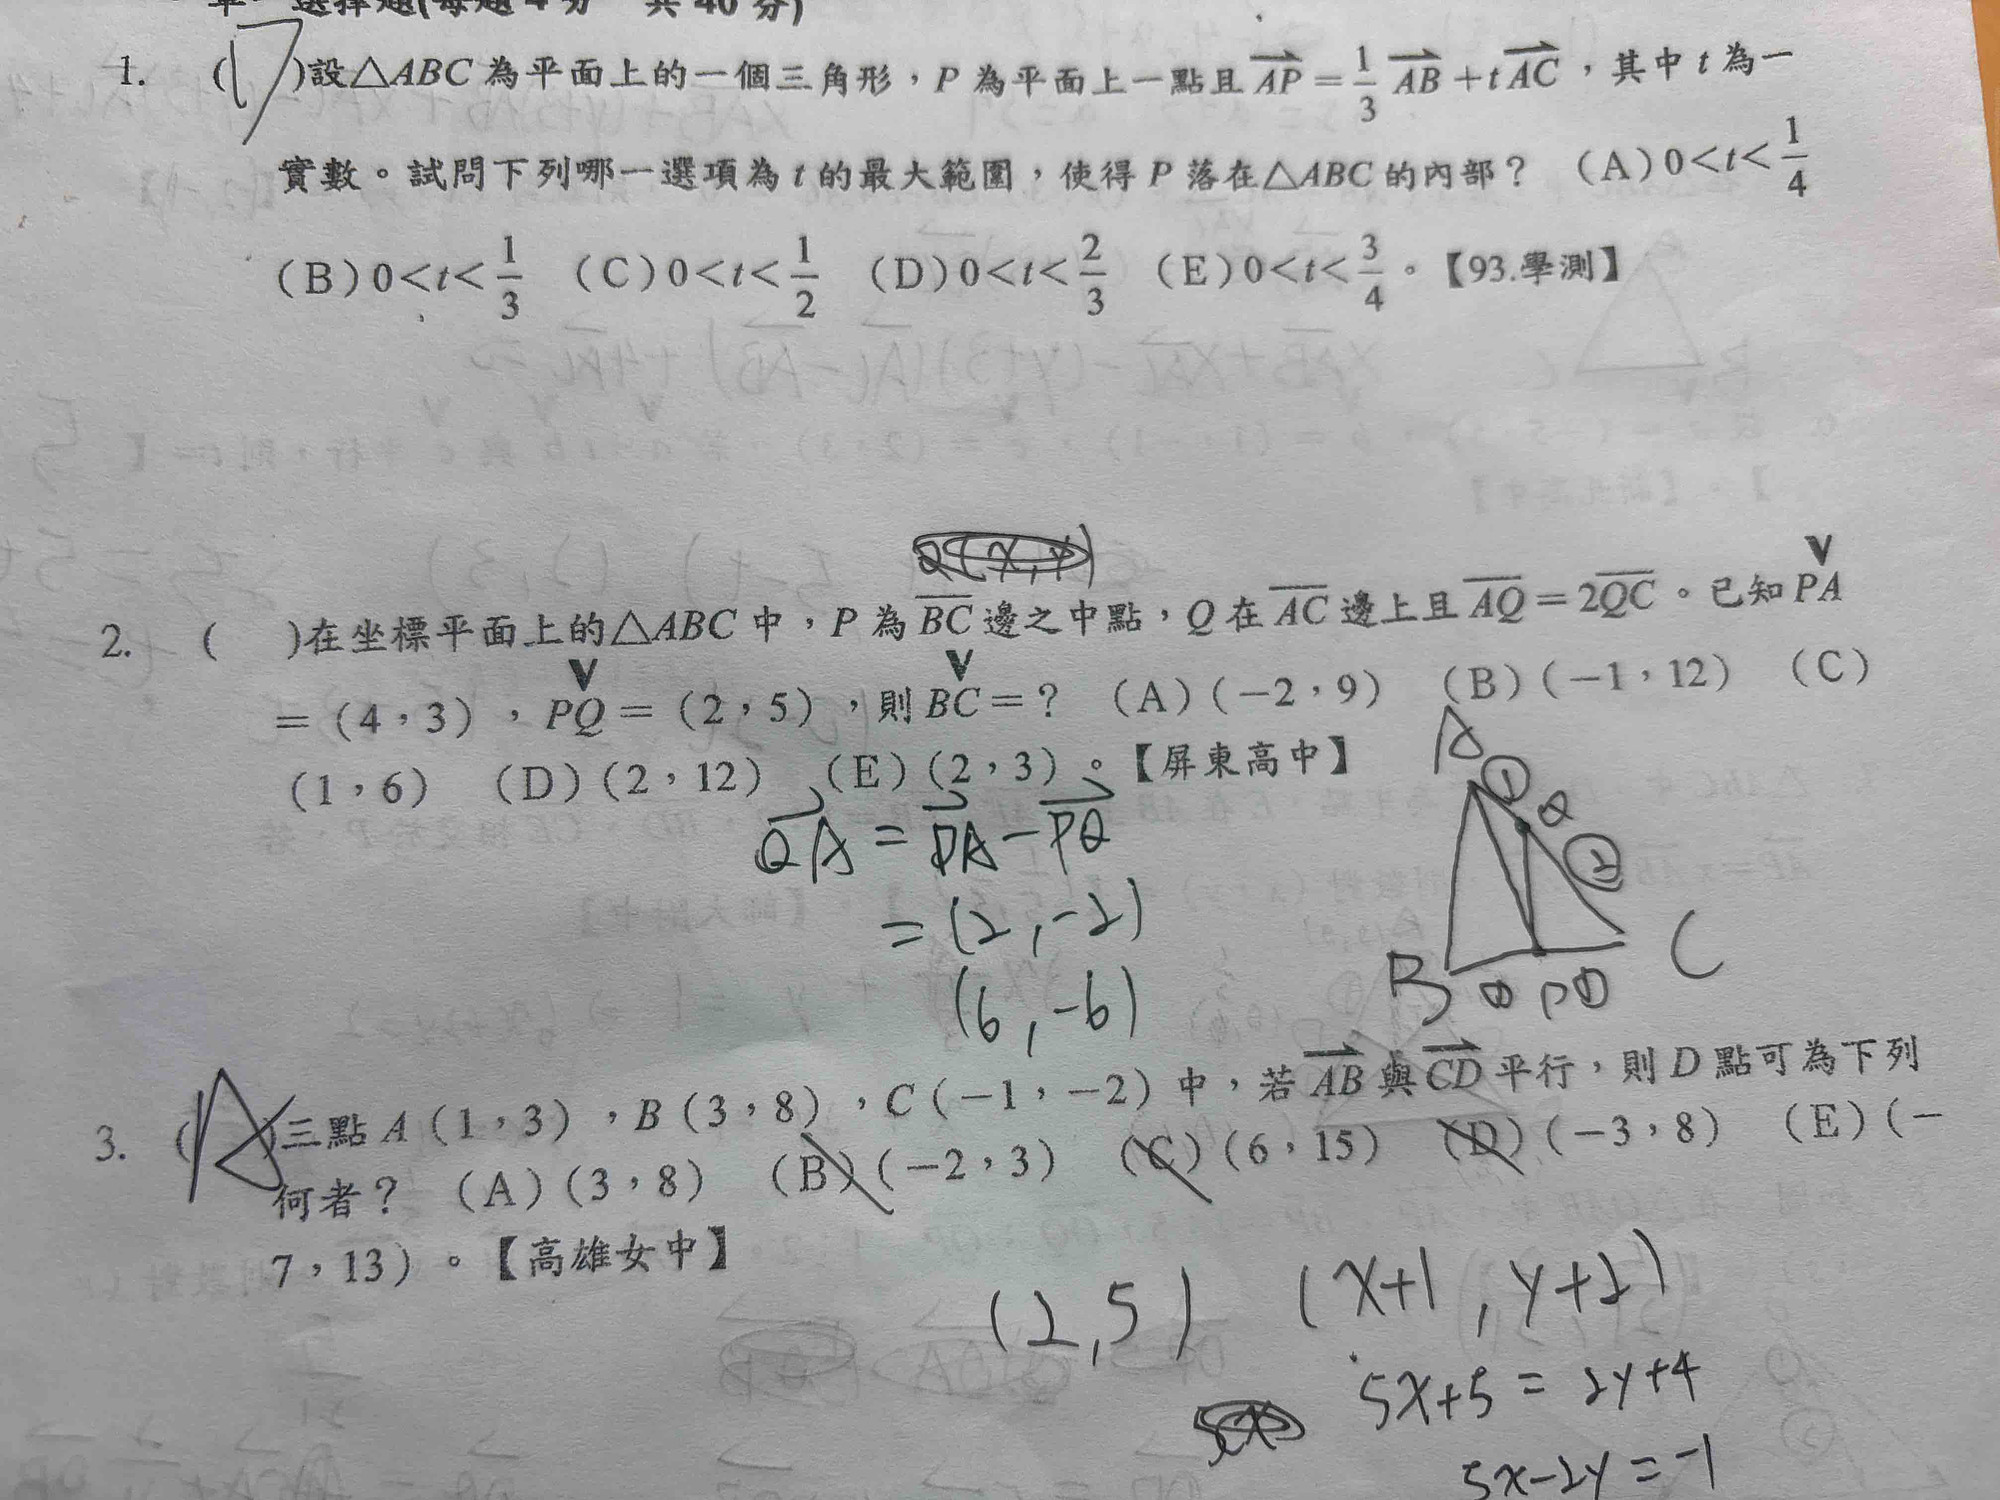 單、選擇題(每題4分 共40分)
1. (D)設△ABC為平面上的一個三角形,P為平面上一點且AP=1/3 AB+tAC,其中t為一
實數。試問下列哪一選項為t的最大範圍,使得P落在△ABC的內部? (A)0<t<1/4
(B)0<t<1/3 (C)0<t<1/2 (D)0<t<2/3 (E)0<t<3/4。【93.學測】
Q(x,y)
2. ( )在坐標平面上的△ABC中,P為BC邊之中點,Q在AC邊上且AQ=2QC。已知PA
=(4,3),PQ=(2,5),則BC=? (A)(-2,9) (B)(-1,12) (C)
(1,6) (D)(2,12) (E)(2,3)。【屏東高中】
QA=PA-PQ
=(2,-2)
(6,-6)
A
① Q
②
B ① P ① C
3. (A)三點A(1,3),B(3,8),C(-1,-2)中,若AB與CD平行,則D點可為下列
何者? (A)(3,8) (B)(-2,3) (C)(6,15) (D)(-3,8) (E)(-
7,13)。【高雄女中】
(2,5) (x+1,y+2)
5x+5=2y+4
5x-2y=-1